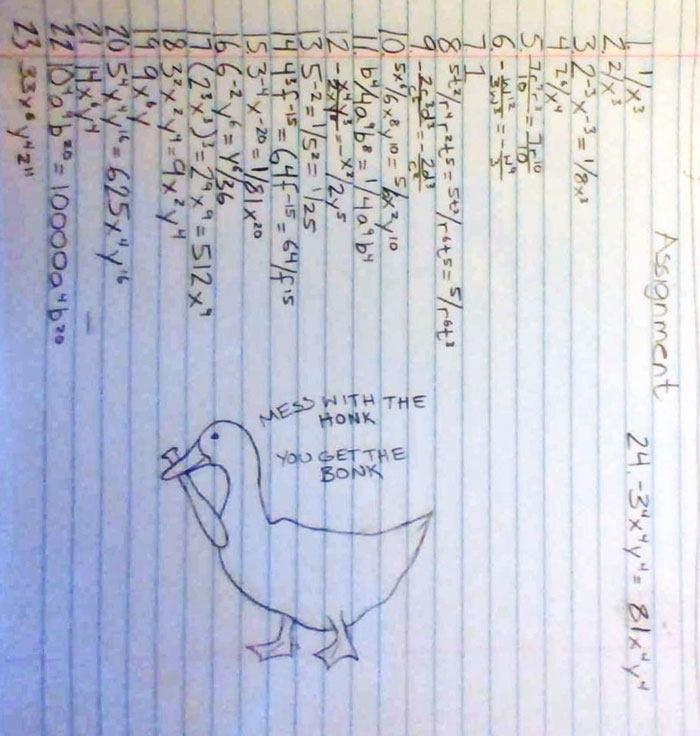 Assignment
1 1/x³
2 2/x³
3 2⁻³x⁻³ = 1/8x³
4
5 = 7r¹⁰/10
6 -w¹²/3w³ = -w⁹/3
7 1
8 5t²/r⁴r²t⁵ = 5t²/r⁶t⁵ = 5/r⁶t³
9 = -2d³/c²
10 5x⁶/6x⁸y¹⁰ = 5/6x²y¹⁰
11 b⁴/4a⁹b⁸ = 1/4a⁹b⁴
12 = -x²/2y⁵
13 5⁻² = 1/5² = 1/25
14 4³f⁻¹⁵ = 64f⁻¹⁵ = 64/f¹⁵
15 3⁻⁴x⁻²⁰ = 1/81x²⁰
16 6⁻²y⁶ = y⁶/36
17 (2³x³)³ = 2⁹x⁹ = 512x⁹
18 3²x²y⁴ = 9x²y⁴
19 9x⁶y
20 5⁴x⁴y¹⁶ = 625x⁴y¹⁶
21 14x⁹y⁴
22 10⁴a⁴b²⁰ = 10000a⁴b²⁰
23 33x⁶y⁴z¹¹
24. -3⁴x⁴y⁴ = 81x⁴y⁴
MESS WITH THE
HONK
YOU GET THE
BONK